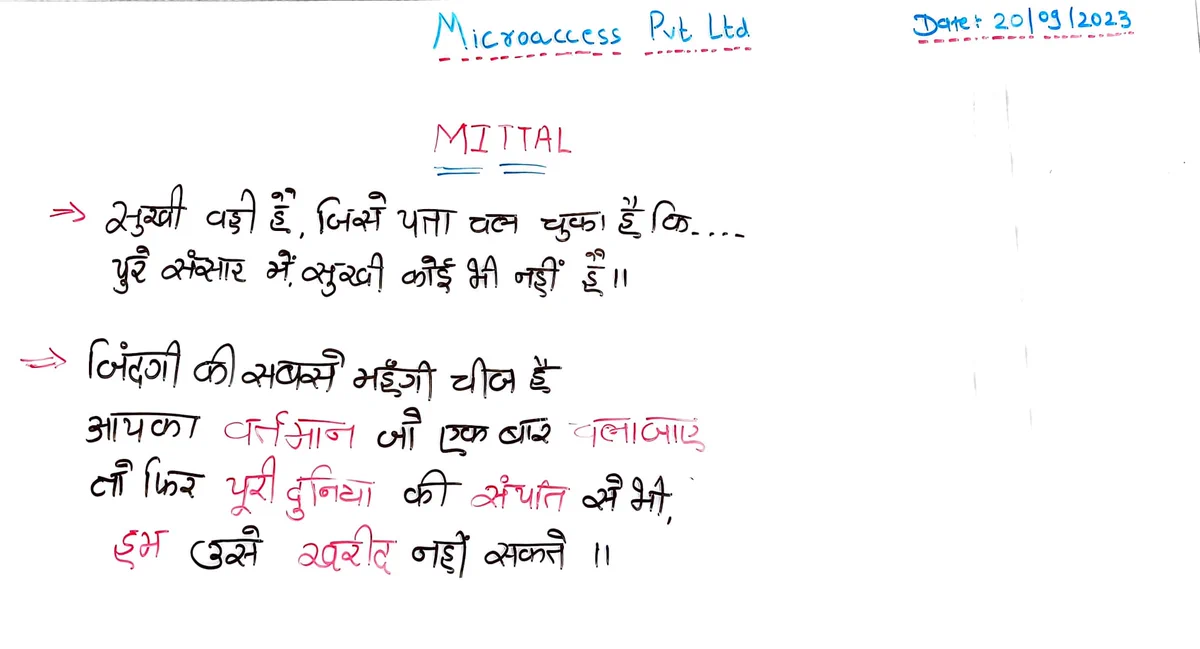 Microaccess Pvt Ltd
Date: 20/09/2023
MITTAL
⇒ सुखी वही है, जिसे पता चल चुका है कि....
पुरे संसार में, सुखी कोई भी नहीं है॥
⇒ जिंदगी की सबसे महँगी चीज है
आपका वर्तमान जो एक बार चलाजाए
तो फिर पूरी दुनिया की संपति से भी,
हम उसे खरीद नहीं सकते ॥